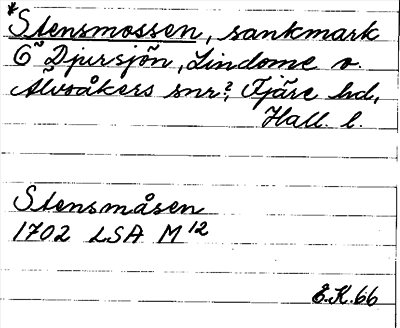 *Stensmossen, sankmark
Ö Djursjön, Lindome o.
Älvsåkers snr?, Fjäre hd,
Hall. l.
Stensmåsen
1702 LSA M 12
E.K. 66